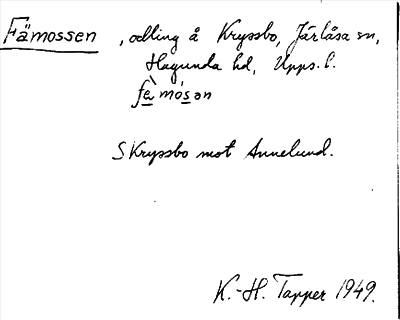 Fämossen , odling å Kryssbo, Järlåsa sn,
Hagunda hd, Upps. l.
fè̱ mós̱ən
S Kryssbo mot Annelund.
K.-H. Tapper 1949.